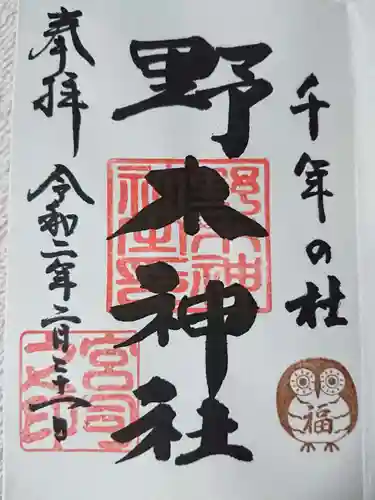 千年の杜
野木神社
奉拝
令和二年二月二十一日
宮司之印
福